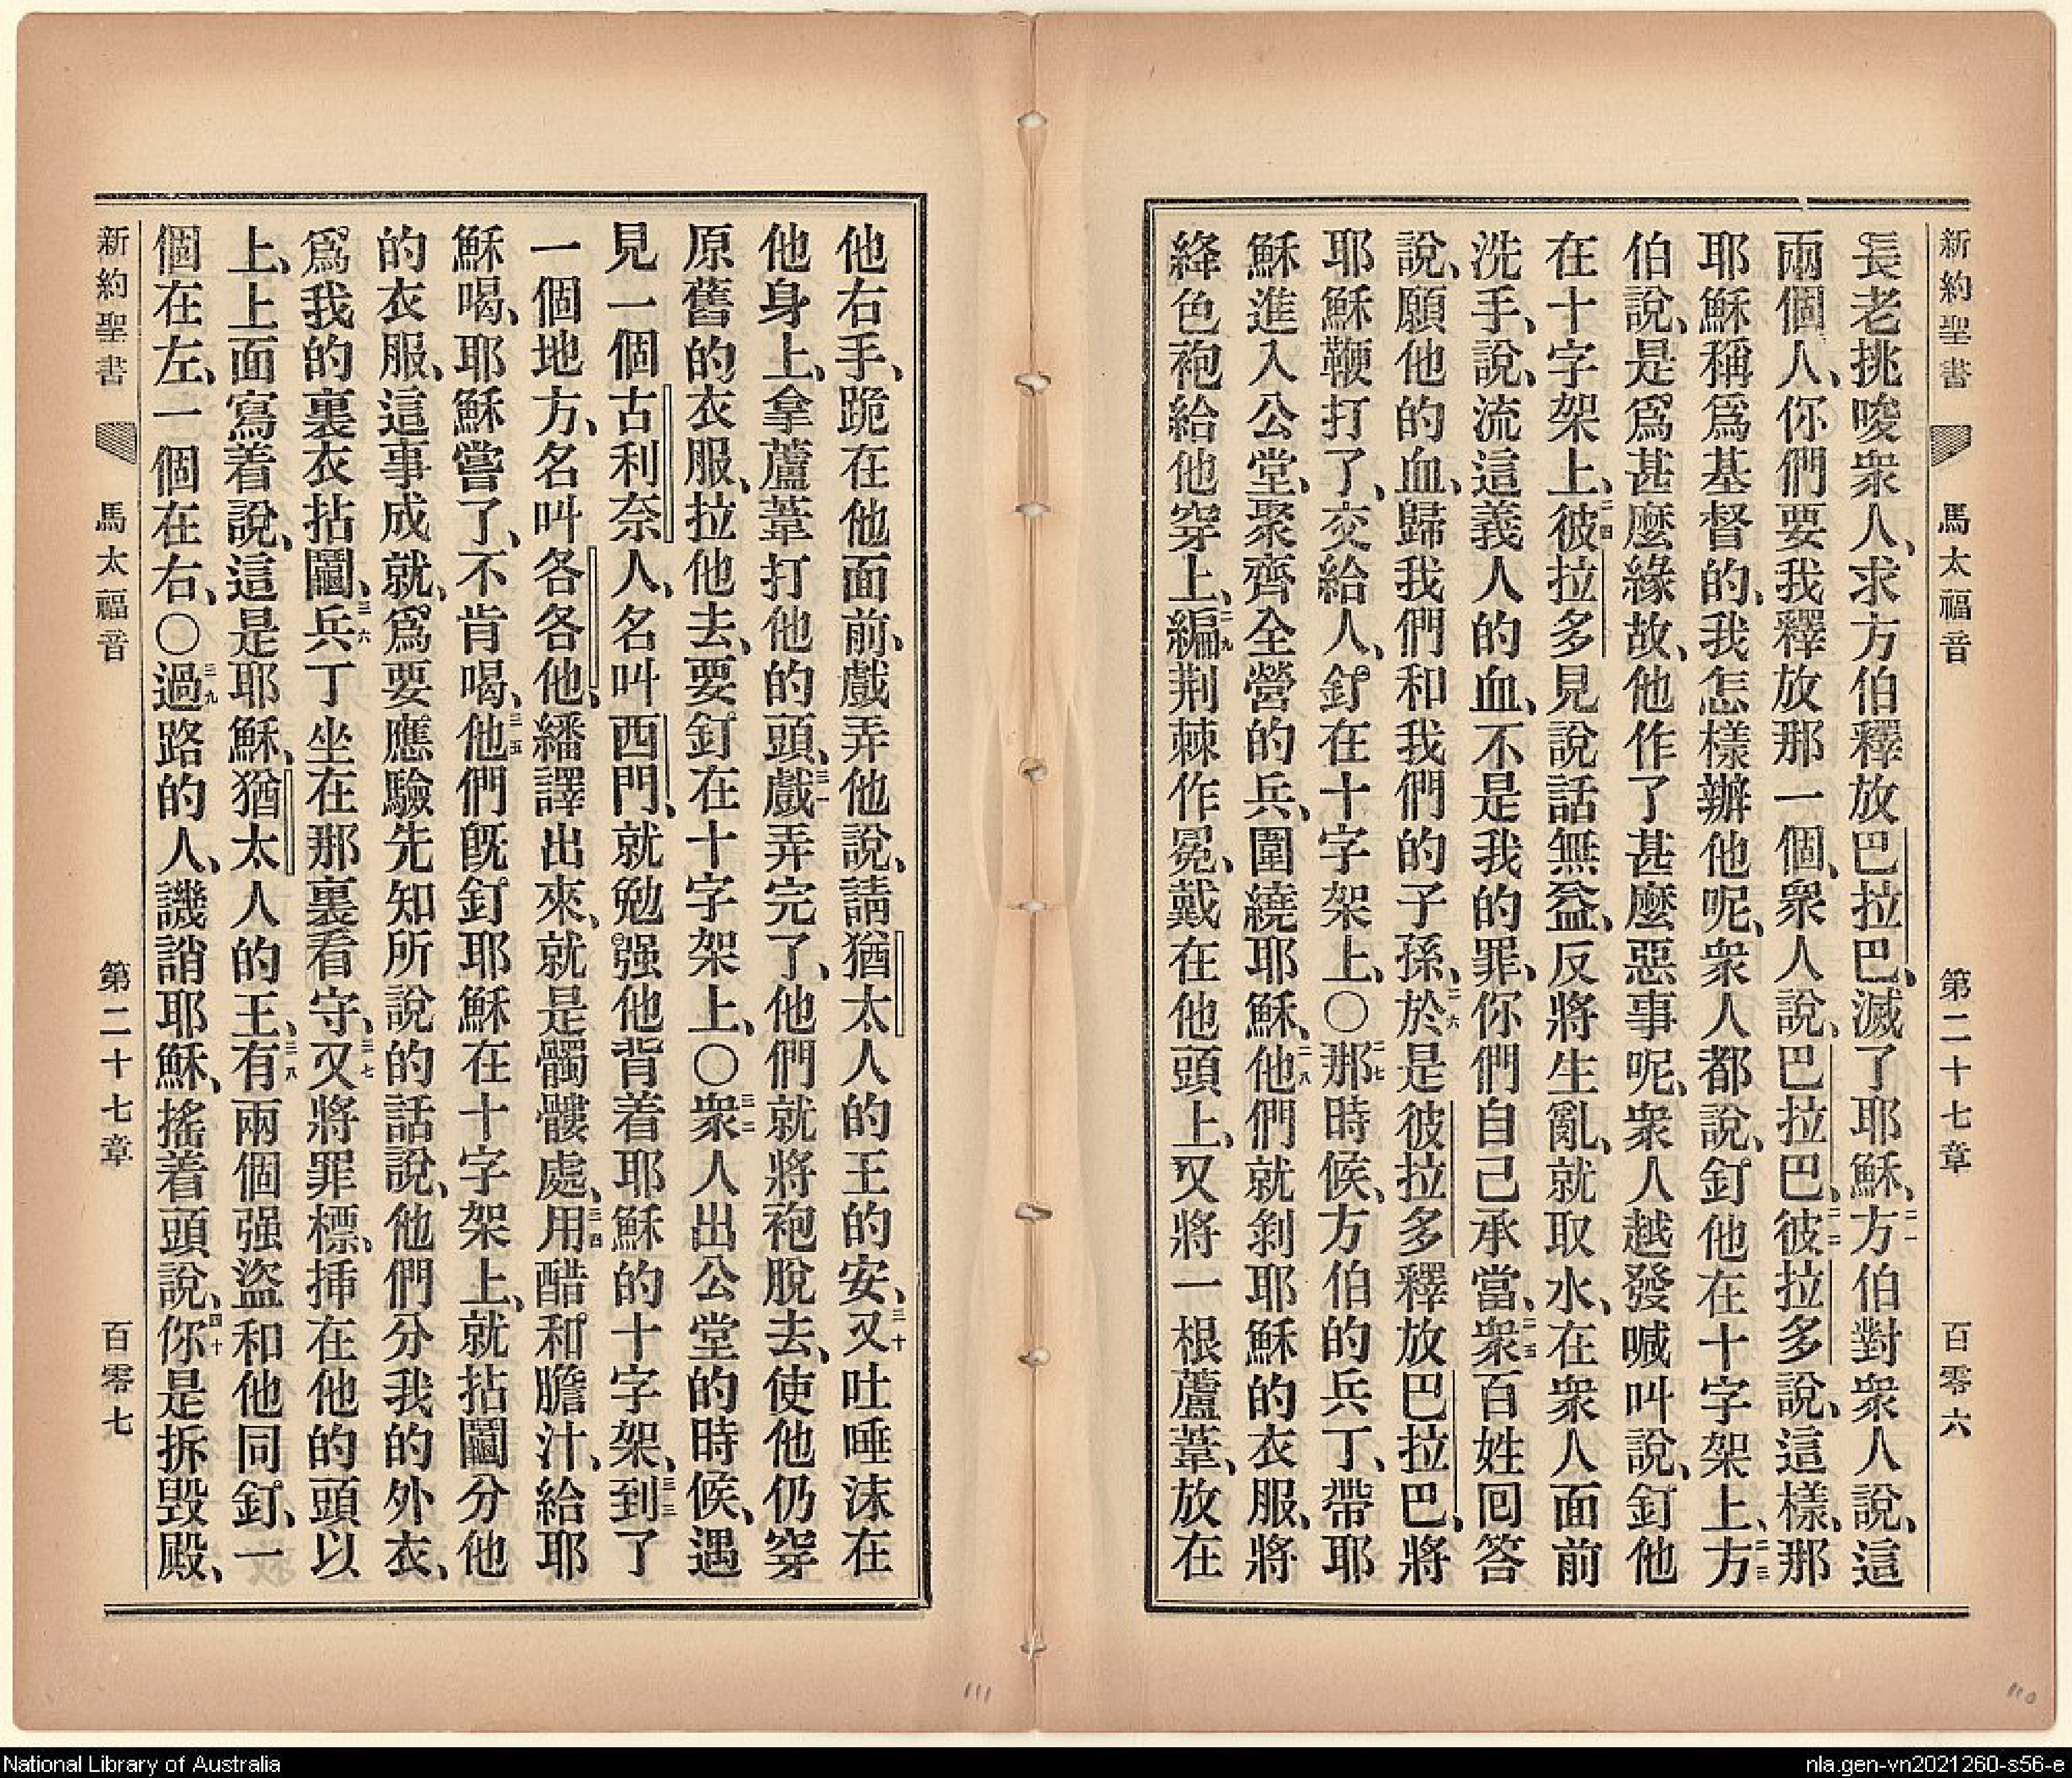 新約聖書 馬太福音 第二十七章 百零六
長老挑唆衆人、求方伯釋放巴拉巴、滅了耶穌、二一方伯對衆人說、這
兩個人、你們要我釋放那一個、衆人說、巴拉巴、二二彼拉多說、這樣、那
耶穌稱爲基督的、我怎樣辦他呢、衆人都說、釘他在十字架上、二三方
伯說、是爲甚麼緣故、他作了甚麼惡事呢、衆人越發喊叫說、釘他
在十字架上、二四彼拉多見說話無益、反將生亂、就取水、在衆人面前
洗手、說、流這義人的血、不是我的罪、你們自己承當、二五衆百姓回答
說、願他的血、歸我們和我們的子孫、二六於是彼拉多釋放巴拉巴、將
耶穌鞭打了、交給人、釘在十字架上、〇二七那時候、方伯的兵丁、帶耶
穌進入公堂、聚齊全營的兵、圍繞耶穌、二八他們就剝耶穌的衣服、將
絳色袍給他穿上、二九編荆棘作冕、戴在他頭上、又將一根蘆葦、放在
他右手、跪在他面前、戲弄他說、請猶太人的王的安、三十又吐唾沫在
他身上、拿蘆葦打他的頭、三一戲弄完了、他們就將袍脫去、使他仍穿
原舊的衣服、拉他去、要釘在十字架上、〇三二衆人出公堂的時候、遇
見一個古利奈人、名叫西門、就勉强他背着耶穌的十字架、三三到了
一個地方、名叫各各他、繙譯出來、就是髑髏處、三四用醋和膽汁、給耶
穌喝、耶穌嘗了、不肯喝、三五他們旣釘耶穌在十字架上、就拈鬮分他
的衣服、這事成就、爲要應驗先知所說的話說、他們分我的外衣、
爲我的裏衣拈鬮、三六兵丁坐在那裏看守、三七又將罪標、揷在他的頭以
上、上面寫着說、這是耶穌、猶太人的王、三八有兩個强盜和他同釘、一
個在左、一個在右、〇三九過路的人、譏誚耶穌、搖着頭說、四十你是拆毀殿、
新約聖書 馬太福音 第二十七章 百零七
110
111
National Library of Australia
nla.gen-vn2021260-s56-e